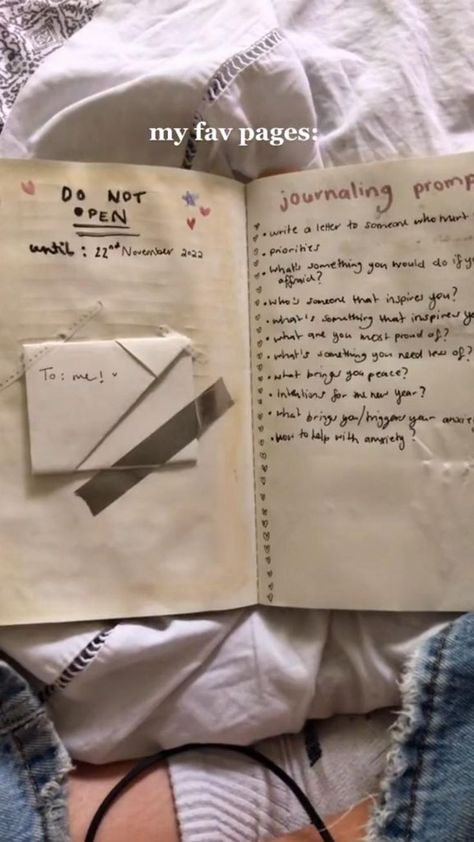 my fav pages:
DO NOT
OPEN
until: 22nd November 2022
To: me!
journaling promp
• write a letter to someone who hurt
• priorities
• what's something you would do if y
affraid?
• who's someone that inspires you?
• what's something that inspires y
• what are you most proud of?
• what's something you need less of?
• what brings you peace?
• intentions for the new year?
• what brings you/triggers your anxie
• how to help with anxiety?